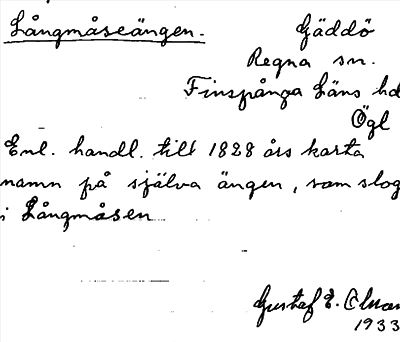 Långmåseängen.
Gäddö
Regna sn.
Finspånga Läns hd
Ögl
Enl. handl. till 1828 års karta
namn på själva ängen, som slog
i Långmåsen
Gustaf E. Olsson
1933